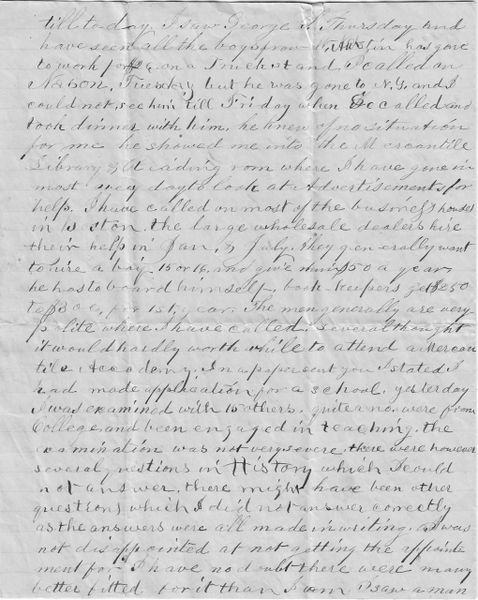 till to day. I saw George H. Thursday and
have seen all the boys now. has gone
to work for on a Fruit stand, I called on
Nelson, Tuesday but he was gone to N.Y. and I
could not see him till Friday when I called and
took dinner with him, he knew of no situation
for me he showed me into the Mercantile
Library & Reading rom where I have gone in
most every day to look at Advertisements for
help. I have called on most of the business houses
in Boston. the large wholesale dealers hire
their help in Jan, & July. they generally want
to hire a boy 15 or 16, and give him $50 a year,
he has to board himself, book-keepers get $250
to $300, for 1st, year. The men generally are very
polite where I have called, several thought
it would hardly worth while to attend a Mercan
tile Accademy. In a paper sent you I stated I
had made application for a school, yesterday
I was examined with 15 others, quite a no. were from
College, and been engaged in teaching, the
examination was not very severe, there were however
several questions in History which I could
not answer, there might have been other
questions which I did not answer correctly
as the answers were all made in writing, I was
not disappointed at not getting the appoint
ment for I have no doubt there were many
better fitted for it than I am I saw a man